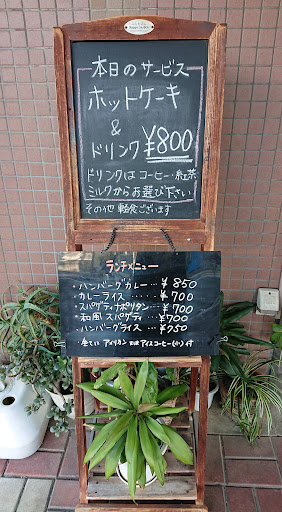 本日のサービス
ホットケーキ
&
ドリンク ¥800
ドリンクは コーヒー・紅茶
ミルクからお選び下さい
その他 軽食ございます
ランチメニュー
・ハンバーグカレー … ¥850
・カレーライス ‥‥‥ ¥700
・スパゲティナポリタン … ¥700
・和風スパゲティ … ¥700
・ハンバーグライス … ¥950